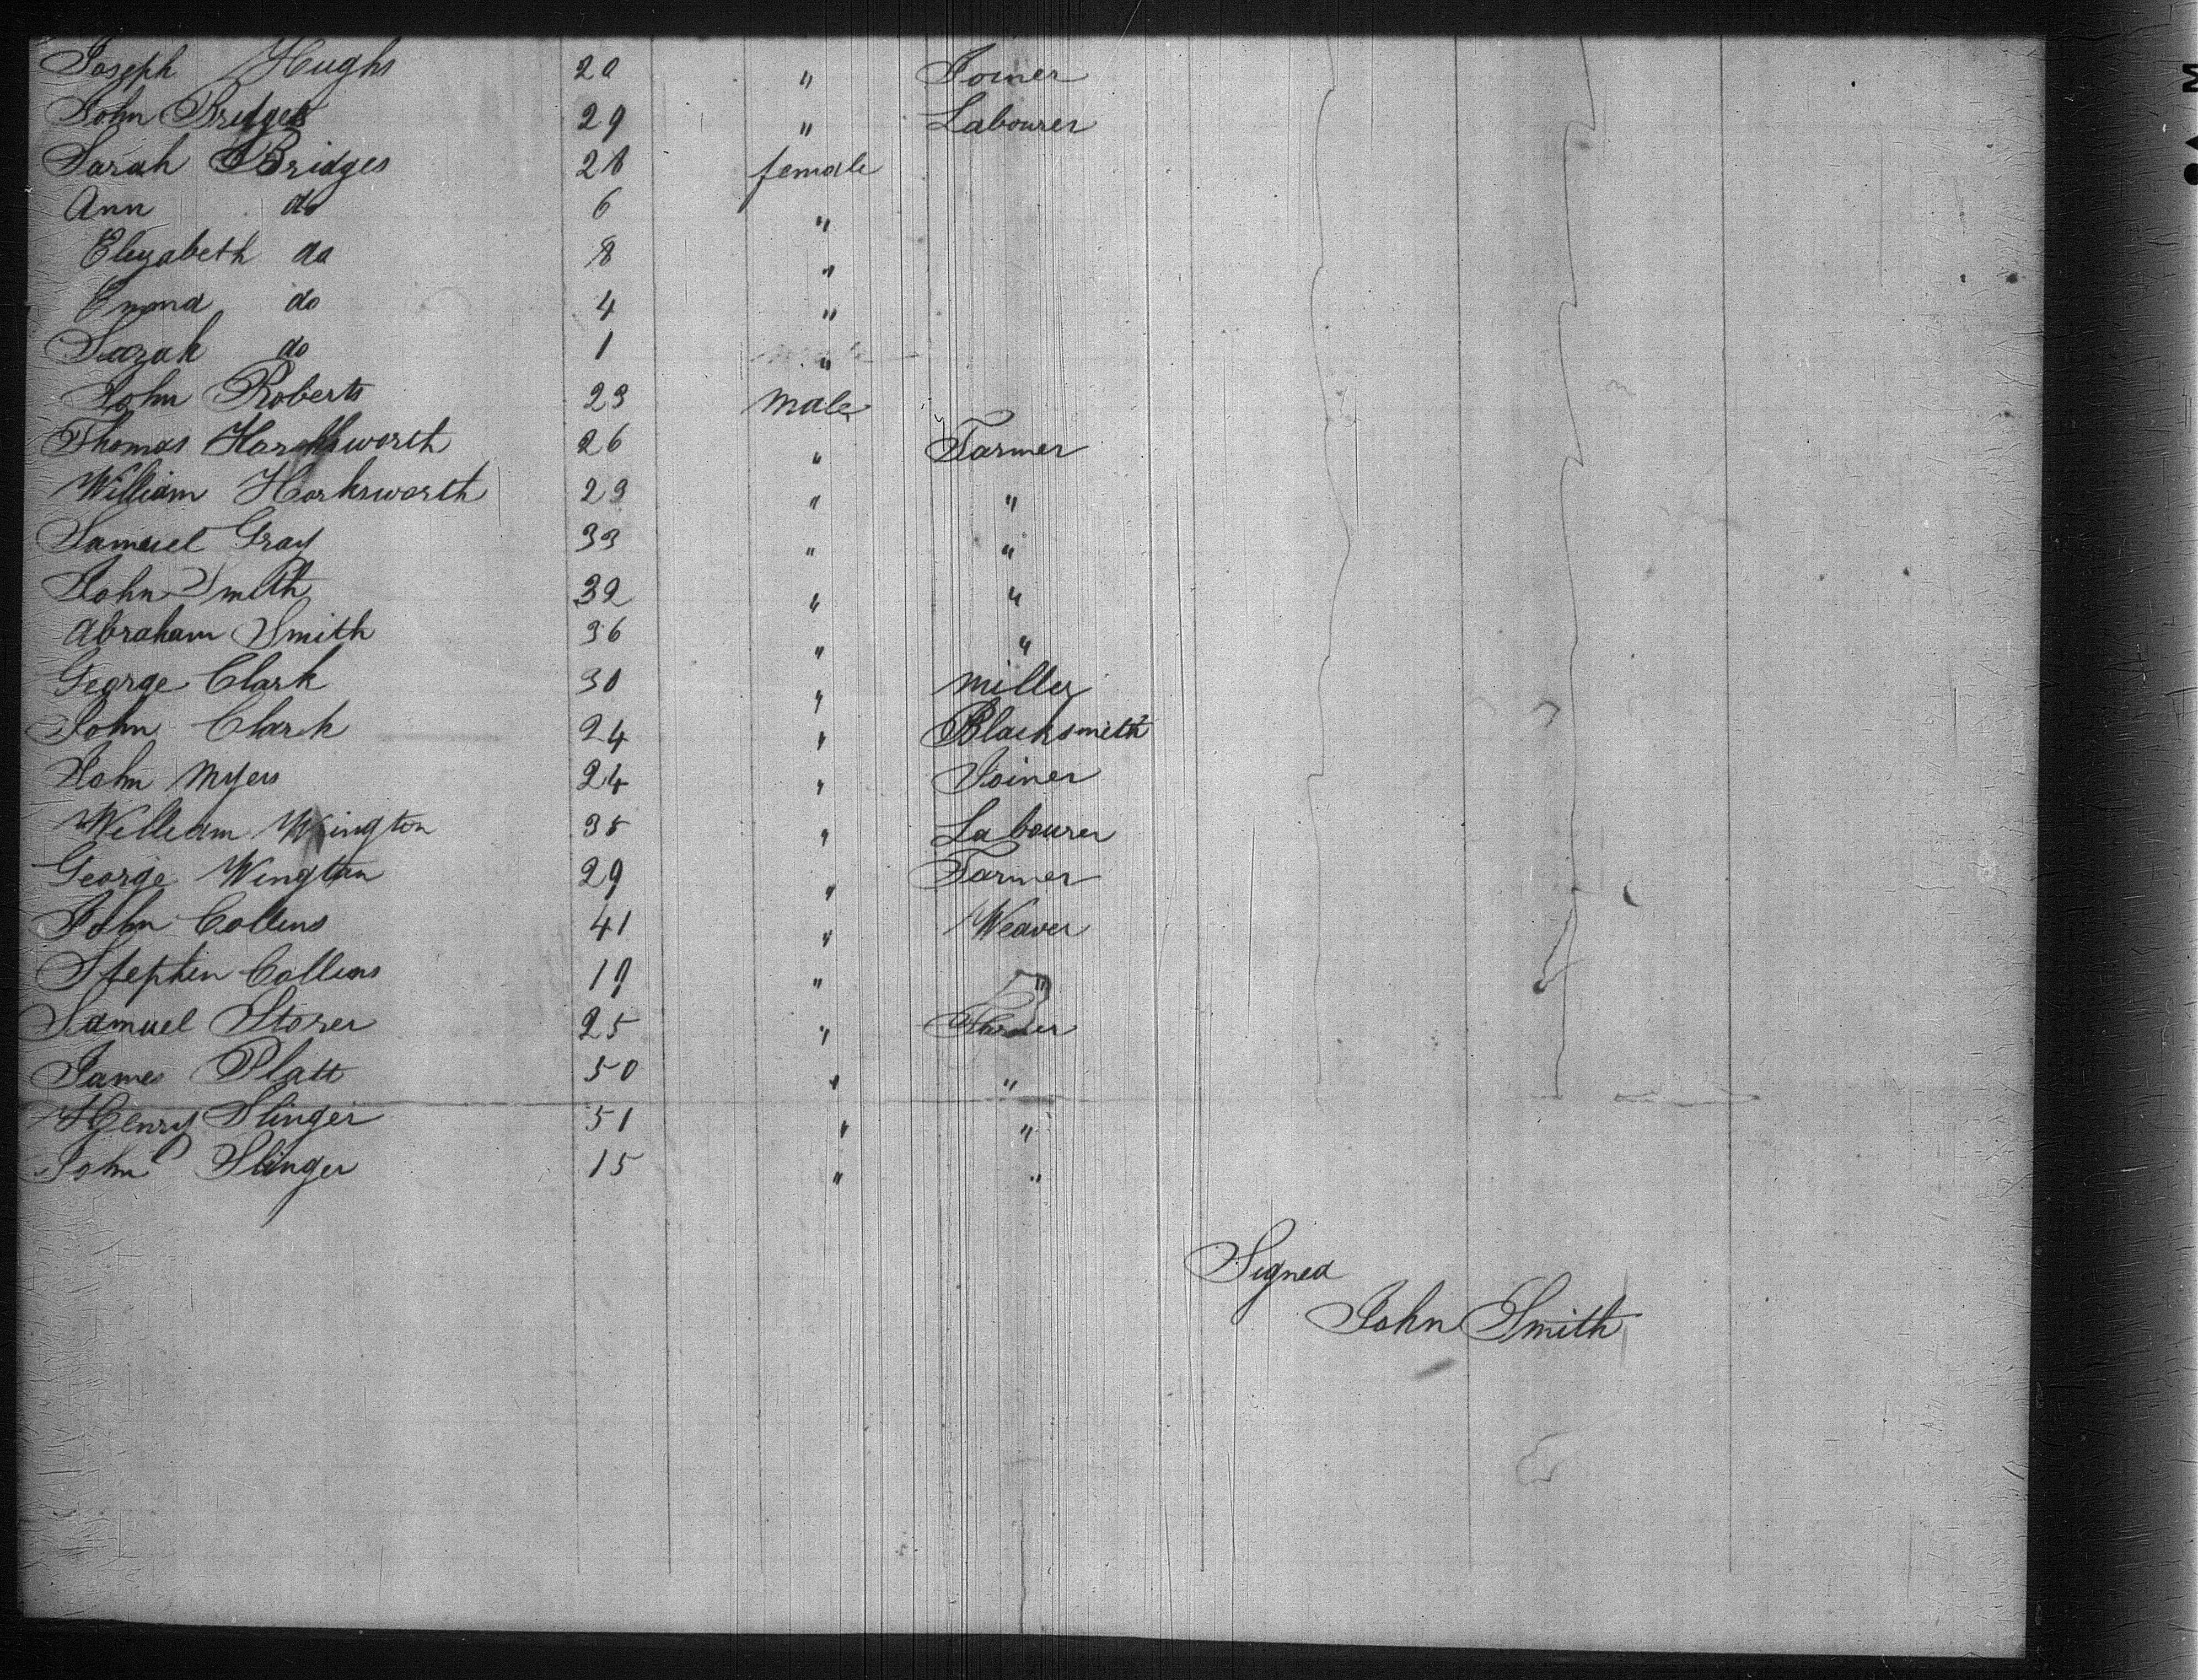 Joseph Hughs 20 " Joiner
John Bridges 29 " Labourer
Sarah Bridges 28 female
Ann do 6 "
Elizabeth do 8 "
Emma do 4 "
Sarah do 1 "
John Roberts 23 male
Thomas Harksworth 26 " Farmer
William Harksworth 29 " "
Samuel Gray 33 " "
John Smith 32 " "
Abraham Smith 36 " "
George Clark 30 " Miller
John Clark 24 " Blacksmith
John Myers 24 " Joiner
William Wington 35 " Labourer
George Wington 29 " Farmer
John Collins 41 " Weaver
Stephen Collins 19 " "
Samuel Storer 25 "
James Platt 50 " "
Henry Slinger 51 " "
John Slinger 15 " "
Signed
John Smith